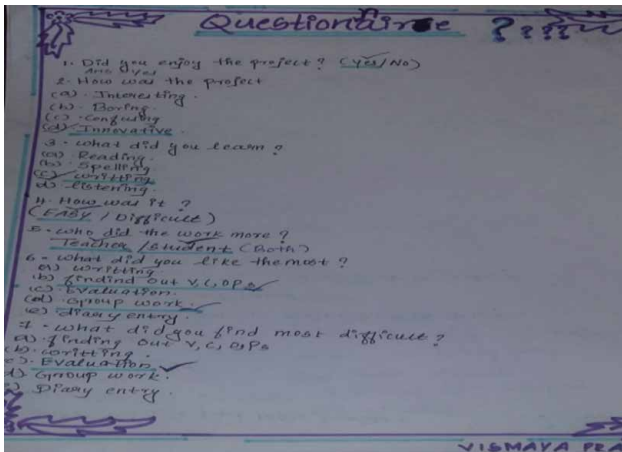 Questionairse ????
1. Did you enjoy the project? (Yes/No)
Ans: Yes
2. How was the project
(a). Interesting.
(b). Boring.
(c). Confusing
(d). Innovative.
3. What did you learn?
(a). Reading.
(b). Spelling
(c). writting
d). listening.
4. How was it?
(EASY / Difficult)
5. Who did the work more?
Teacher / Student (Both)
6. What did you like the most?
a). writting
b). findind out V, C, O, Ps
(c). Evaluation.
(d). Group work.
(e). diary entry.
7. What did you find most difficult?
a). finding out V, C, O, Ps
(b). writting.
c). Evaluation
d) Group work.
) Diary entry.
VISMAYA PRA